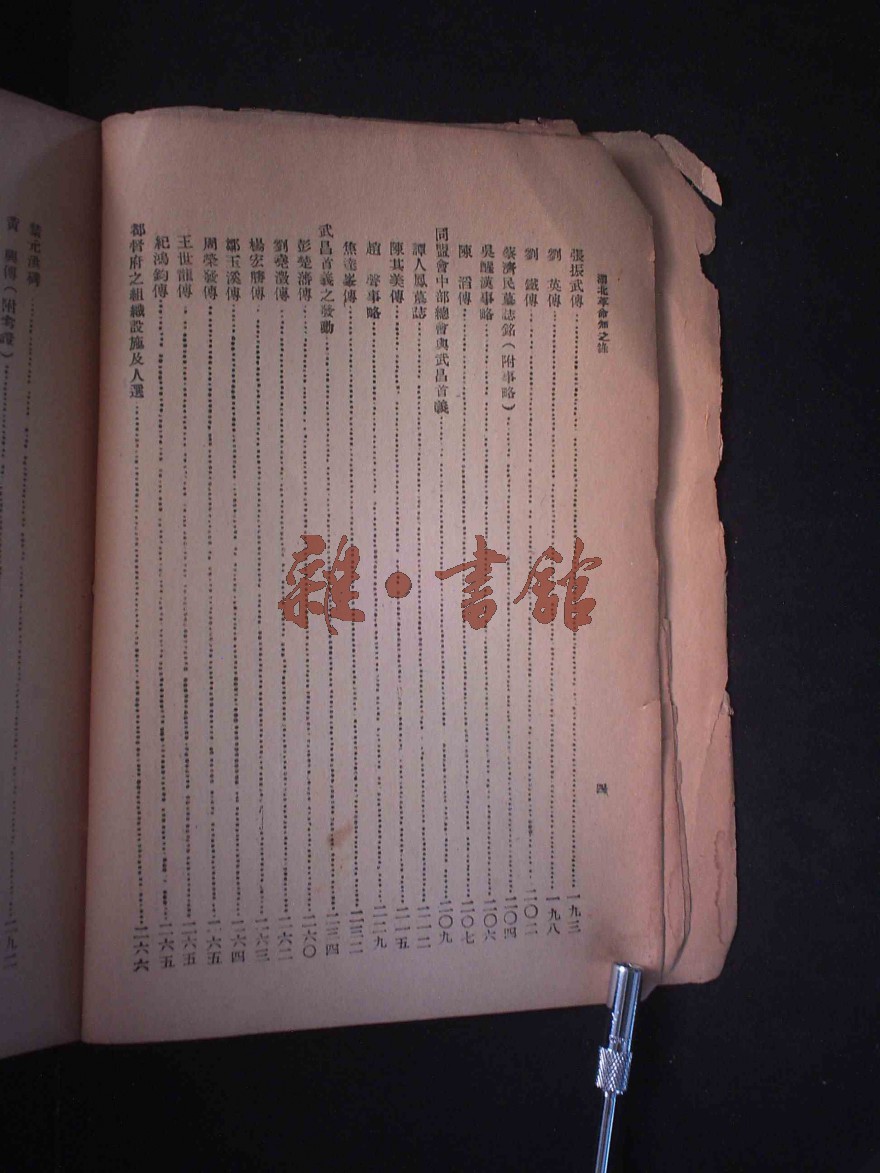 湖北革命知之錄
四
張振武傳 一九三
劉英傳 一九八
劉鐵傳 二〇二
蔡濟民墓誌銘(附事略) 二〇四
吳醒漢事略 二〇六
陳滔傳 二〇七
同盟會中部總會與武昌首義 二〇九
譚人鳳墓誌 二一二
陳其美傳 二一五
趙聲事略 二二九
焦達峯傳 二三二
武昌首義之發動 二三四
彭楚藩傳 二六〇
劉堯澂傳 二六二
楊宏勝傳 二六三
鄒玉溪傳 二六四
周榮發傳 二六五
王世龍傳 二六五
紀鴻鈞傳 二六五
都督府之組織設施及人選 二六六
黎元洪碑
黃興傳(附考證) 二九二
雜·書館